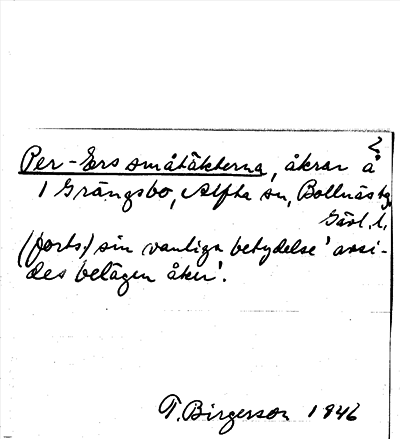 2.
Per-Ers småtäkterna, åkrar å
1 Grängsbo, Alfta sn, Bollnäs tg,
Gävl. l.
(forts.) sin vanliga betydelse 'avsi-
des belägen åker'.
T. Birgerson 1946